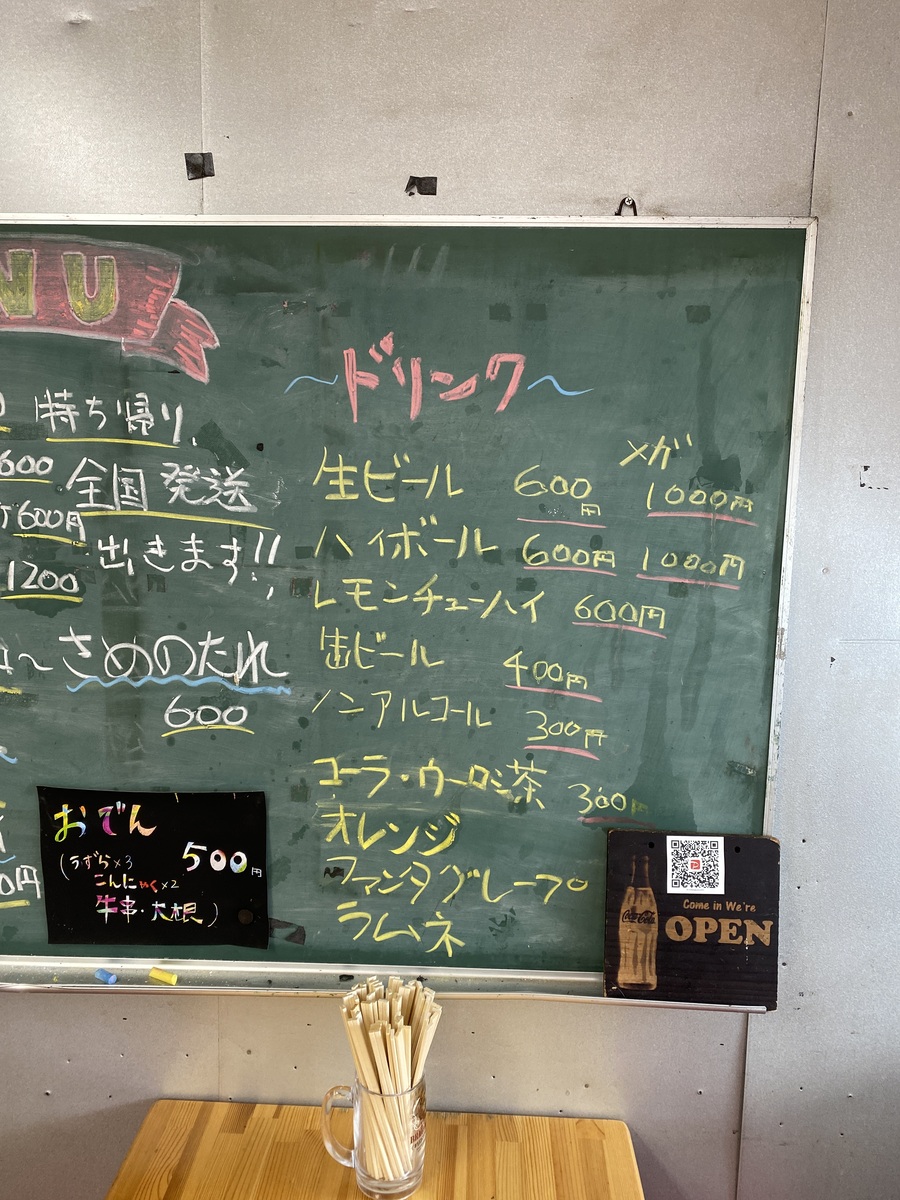 NU
持ち帰り、
600 全国発送
600円 出きます!!
1200
～さめのたれ
600
おでん
(うずら×3 500円
こんにゃく×2
牛串・大根)
～ドリンク～
メガ
生ビール 600円 1000円
ハイボール 600円 1000円
レモンチューハイ 600円
缶ビール 400円
ノンアルコール 300円
コーラ・ウーロン茶 300円
オレンジ
ファンタグレープ
ラムネ
Coca-Cola
Come in We're
OPEN